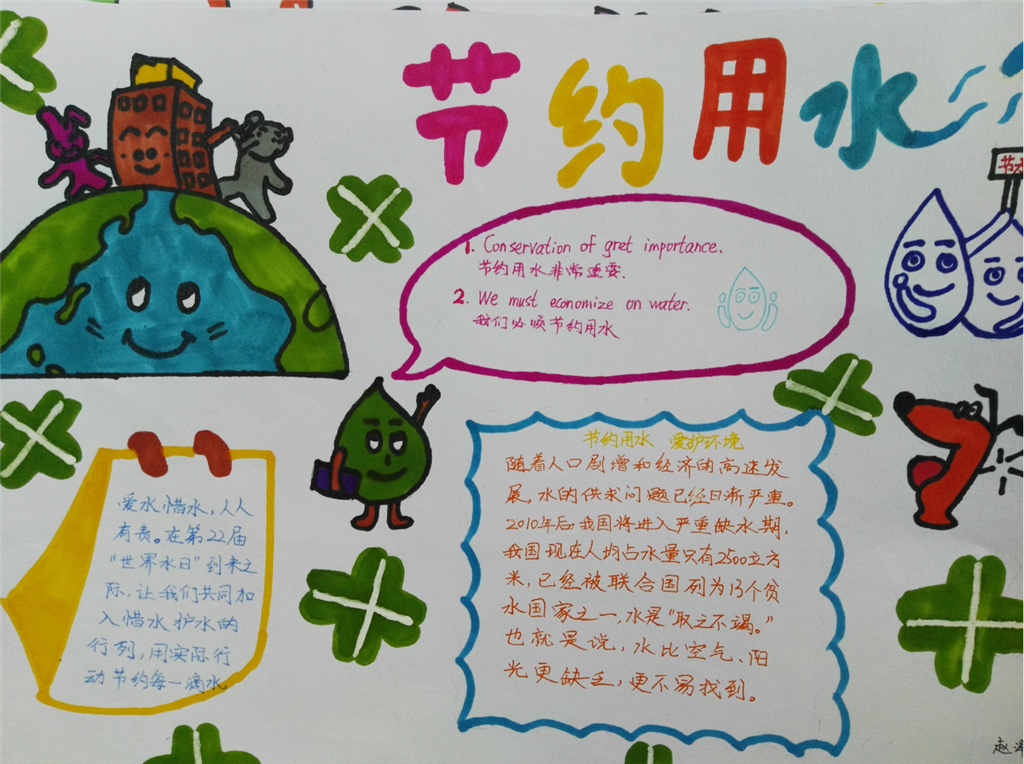 节约用水
节水
1. Conservation of gret importance.
节约用水非常重要.
2. We must economize on water.
我们必须节约用水
节约用水 爱护环境
随着人口剧增和经济的高速发
展,水的供求问题已经日渐严重。
2010年后,我国将进入严重缺水期,
我国现在人均占水量只有2500立方
米,已经被联合国列为13个贫
水国家之一,水是"取之不竭。"
也就是说,水比空气、阳
光更缺乏,更不易找到。
爱水惜水,人人
有责。在第22届
"世界水日"到来之
际,让我们共同加
入惜水护水的
行列,用实际行
动节约每一滴水
赵